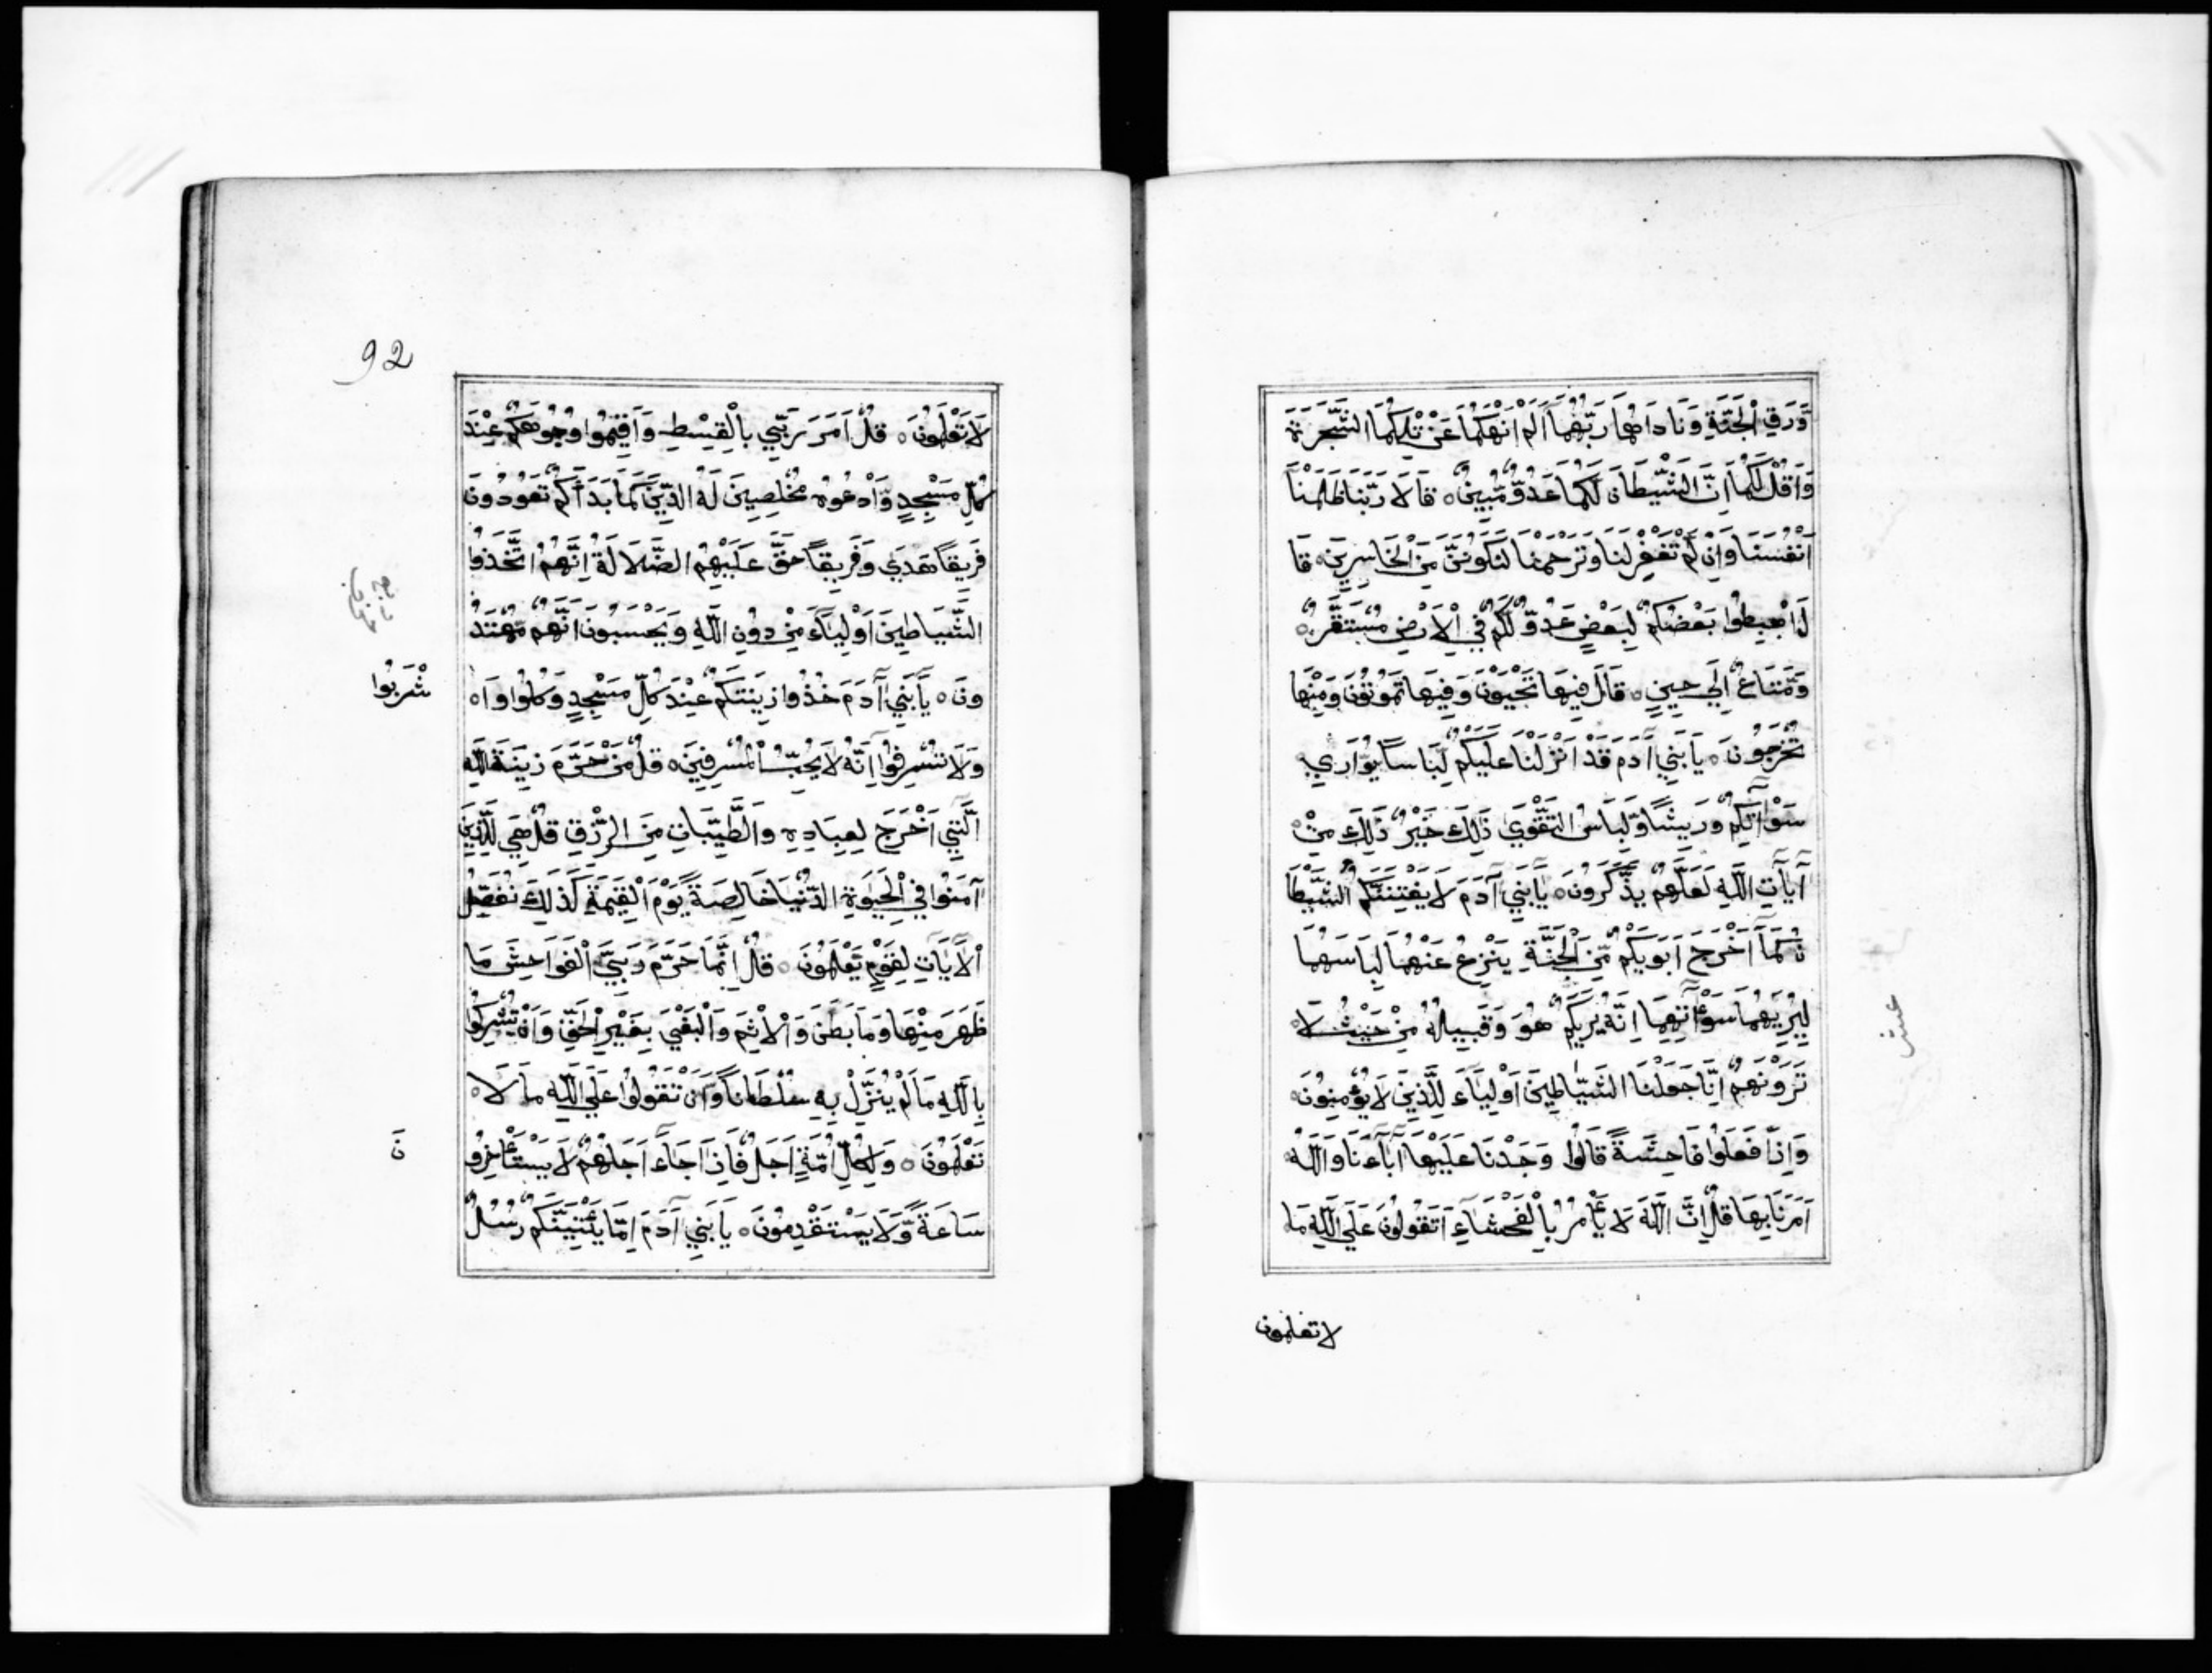 وَّرَقِ الْجَنَّةِ وَنَادَاهُمَا رَبُّهُمَا اَلَمْ اَنْهَكُمَا عَنْ تِلْكُمَا الشَّجَرَةِ
وَاَقُلْ لَّكُمَا اِنَّ الشَّيْطَانَ لَكُمَا عَدُوٌّ مُّبِينٌ ۝ قَالَا رَبَّنَا ظَلَمْنَا
اَنْفُسَنَا وَاِنْ لَّمْ تَغْفِرْ لَنَا وَتَرْحَمْنَا لَنَكُونَنَّ مِنَ الْخَاسِرِينَ ۝ قَا
لَ اهْبِطُوا بَعْضُكُمْ لِبَعْضٍ عَدُوٌّ وَلَكُمْ فِي الْاَرْضِ مُسْتَقَرٌّ
وَّمَتَاعٌ اِلَي حِينٍ ۝ قَالَ فِيهَا تَحْيَوْنَ وَفِيهَا تَمُوتُونَ وَمِنْهَا
تُخْرَجُونَ ۝ يَا بَنِي آدَمَ قَدْ اَنْزَلْنَا عَلَيْكُمْ لِبَاسًا يُّوَارِي
سَوْآتِكُمْ وَرِيشًا وَّلِبَاسُ التَّقْوَي ذَلِكَ خَيْرٌ ذَلِكَ مِنْ
آيَاتِ اللَّهِ لَعَلَّهُمْ يَذَّكَّرُونَ ۝ يَا بَنِي آدَمَ لَا يَفْتِنَنَّكُمُ الشَّيْطَا
نُ كَمَا اَخْرَجَ اَبَوَيْكُمْ مِّنَ الْجَنَّةِ يَنْزِعُ عَنْهُمَا لِبَاسَهُمَا
لِيُرِيَهُمَا سَوْآتِهِمَا اِنَّهُ يَرَيكُمْ هُوَ وَقَبِيلُهُ مِنْ حَيْثُ لَا
تَرَوْنَهُمْ اِنَّا جَعَلْنَا الشَّيَاطِينَ اَوْلِيَاءَ لِلَّذِينَ لَا يُؤْمِنُونَ
وَاِذَا فَعَلُوا فَاحِشَةً قَالُوا وَجَدْنَا عَلَيْهَا آبَاءَنَا وَاللَّهُ
اَمَرَنَا بِهَا قُلْ اِنَّ اللَّهَ لَا يَأْمُرُ بِالْفَحْشَاءِ اَتَقُولُونَ عَلَي اللَّهِ مَا
لا تعلمون
عشر
92
لَا تَعْلَمُونَ ۝ قُلْ اَمَرَ رَبِّي بِالْقِسْطِ وَاَقِيمُوا وُجُوهَكُمْ عِنْدَ
كُلِّ مَسْجِدٍ وَّادْعُوهُ مُخْلِصِينَ لَهُ الدِّينَ كَمَا بَدَاَكُمْ تَعُودُونَ
فَرِيقًا هَدَي وَفَرِيقًا حَقَّ عَلَيْهِمُ الضَّلَالَةُ اِنَّهُمُ اتَّخَذُوا
الشَّيَاطِينَ اَوْلِيَاءَ مِنْ دُونِ اللَّهِ وَيَحْسَبُونَ اَنَّهُمْ مُّهْتَدُ
ونَ ۝ يَا بَنِي آدَمَ خُذُوا زِينَتَكُمْ عِنْدَ كُلِّ مَسْجِدٍ وَكُلُوا وَا
شْرَبُوا
وَلَا تُسْرِفُوا اِنَّهُ لَا يُحِبُّ الْمُسْرِفِينَ ۝ قُلْ مَنْ حَرَّمَ زِينَةَ اللَّهِ
الَّتِي اَخْرَجَ لِعِبَادِهِ وَالطَّيِّبَاتِ مِنَ الرِّزْقِ قُلْ هِيَ لِلَّذِينَ
آمَنُوا فِي الْحَيَوةِ الدُّنْيَا خَالِصَةً يَّوْمَ الْقِيَمَةِ كَذَلِكَ نُفَصِّلُ
الْآيَاتِ لِقَوْمٍ يَعْلَمُونَ ۝ قُلْ اِنَّمَا حَرَّمَ رَبِّيَ الْفَوَاحِشَ مَا
ظَهَرَ مِنْهَا وَمَا بَطَنَ وَالْاِثْمَ وَالْبَغْيَ بِغَيْرِ الْحَقِّ وَاَنْ تُشْرِكُوا
بِاللَّهِ مَا لَمْ يُنَزِّلْ بِهِ سُلْطَانًا وَّاَنْ تَقُولُوا عَلَي اللَّهِ مَا لَا
تَعْلَمُونَ ۝ وَلِكُلِّ اُمَّةٍ اَجَلٌ فَاِذَا جَاءَ اَجَلُهُمْ لَا يَسْتَأْخِرُو
نَ
سَاعَةً وَّلَا يَسْتَقْدِمُونَ ۝ يَا بَنِي آدَمَ اِمَّا يَأْتِيَنَّكُمْ رُسُلٌ